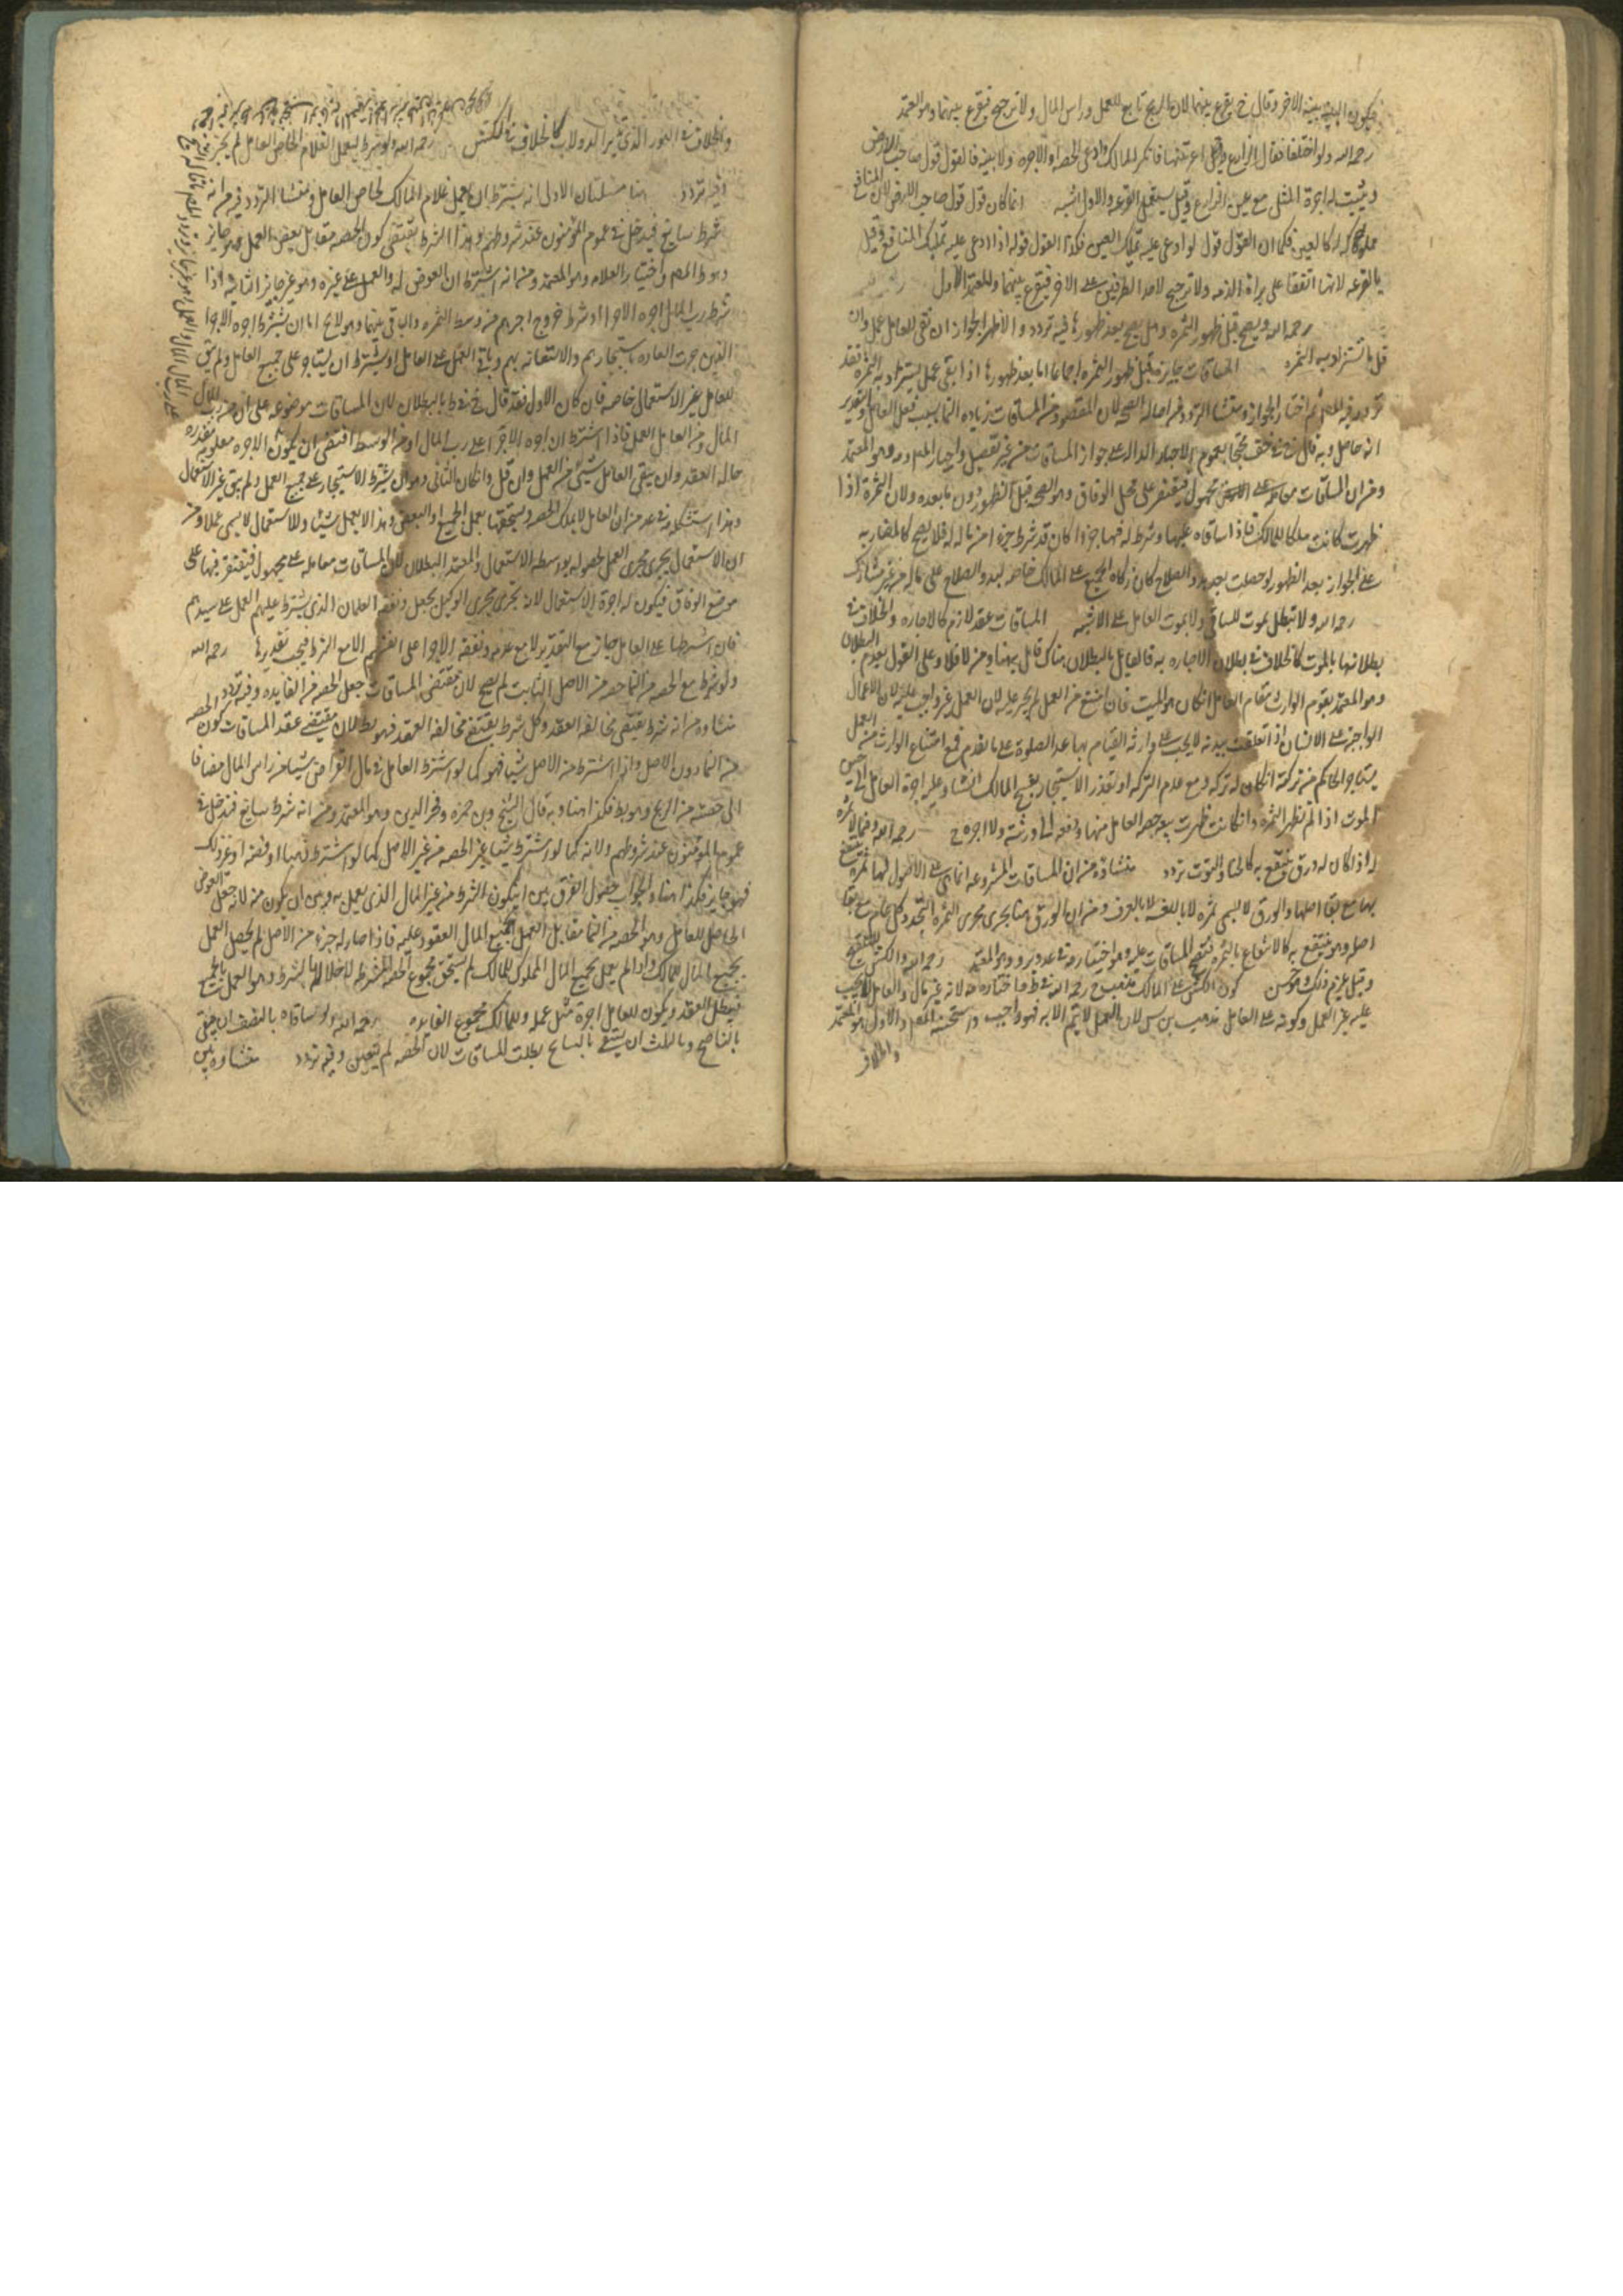 فيكون البينه بينة الاخر وقال خ يقرع بينهما لان الربح تابع للعمل وراس المال ولا ترجيح فيقرع بينهما وهو المعتمد
رحمه الله ولو اختلفا فقال الزارع اعرتنيها فانكر المالك وادعى الحصه او الاجره ولا بينه فالقول قول صاحب الارض
ويثبت له اجرة المثل مع يمين الزارع وقيل يستعمل القرعه والاول اشبه انما كان القول قول صاحب الارض لان المنافع
مملوكه له كالعين فكما ان القول قول لو ادعى عليه تملك العين فكذا القول قوله اذا ادعى عليه تملك المنافع وقيل
بالقرعه لانهما اتفقا على براة الذمه ولا ترجيح لاحد الطرفين على الاخر فيقرع بينهما والمعتمد الاول
رحمه الله ويصح قبل ظهور الثمره وهل يصح بعد ظهورها فيه تردد والاظهر الجواز ان بقى للعامل عمل وان
قل بما تستزاد به الثمره المساقات جايزه قبل ظهور الثمره اجماعا اما بعد ظهورها اذا بقى عمل يستزاد به الثمرة فقد
تردد فيه المص ثم اختار الجواز ومنشا التردد من اصالة الصحه لان المقصود من المساقات زياده النما بسبب فعل العامل والتقدير
انه حاصل وبه قال خ محتجا بعموم الاخبار الداله على جواز المساقات من غير تفصيل واختاره المص وهو المعتمد
ومن ان المساقات معامله على مجهول فيقتصر على محل الوفاق وهو الصحه قبل الظهور دون ما بعده ولان الثمرة اذا
ظهرت كانت ملكا للمالك فاذا ساقاه عليها وشرط له فيها جزءا كان قد شرط جزءا من ماله له فلا يصح كالمضاربه
على الجواز بعد الظهور لو حصلت بعد بدو الصلاح كان زكاة الجميع على المالك خاصه لبدو الصلاح على ماله من غير مشارك
رحمه الله ولا تبطل بموت المساقى ولا بموت العامل على الاشبه المساقات عقد لازم كالاجاره والخلاف في
بطلانها بالموت كالخلاف في بطلان الاجاره به فالقايل بالبطلان هناك قايل به هنا ومن لا فلا وعلى القول بعدم البطلان
وهو المعتمد يقوم الوارث مقام العامل ان كان هو الميت فان امتنع من العمل لم يجبر عليه لان العمل غير واجب عليه لان الاعمال
الواجبة على الانسان اذا تعلقت ببدنه لا يجب على وارثه القيام بها عدا الصلوة على ما تقدم فمع امتناع الوارث من العمل
يستاجر الحاكم من تركته ان كان له تركه ومع عدم التركه او تعذر الاستيجار يفسخ المالك ان شا وعليه اجرة العامل الى حين
الموت اذا لم تظهر الثمره وان كانت ظهرت بيع حصة العامل منها
له اذا كان له ورق ينتفع به كالحنا والتوت تردد منشاوه من ان المساقات المشروعه انما هي على الاصول لها ثمرة ينتفع
بها مع بقا اصلها والورق لا يسمى ثمره لا باللغه ولا بالعرف ومن ان الورق هنا يجرى مجرى الثمره المتجدد كل عام مع بقا
اصله وهو منتفع به كالانتفاع بالثمره فتصح المساقات عليه وهو اختياره في عد وير وهو المعتمد رحمه الله والكش للتلقيح
وقيل يلزم ذلك وهو حسن كون الكش على المالك مذهب خ رحمه الله في ط واختاره مه لانه عين مال والعامل لا يجب
عليه غير العمل وكونه على العامل مذهب بن س لان العمل لا يتم الا به فهو واجب واستحسنه المص والاول هو المعتمد
والخلاف
والخلاف في البقر الذى يدير الدولاب كالخلاف في الكش رحمه الله ولو شرط ليعمل الغلام لخاص العامل لم يجز
وفيه تردد هنا مسئلتان الاولى انه يشترط ان يعمل غلام المالك لخاص العامل ومنشا التردد فيه من انه
شرط سايغ فيدخل في عموم المؤمنون عند شروطهم وهذا الشرط يقتضى كون الحصه مقابل بعض العمل فهو جايز
وهو ط المص واختيار العلامه وهو المعتمد ومن انه اشترط ان العوض له والعمل على غيره وهو غير جايز الثانيه اذا
شرط رب المال اجره الاجرا او شرط خروج اجرهم من وسط الثمره والباقى بينهما وهو لايح اما ان يشترط اجره الاجرا
الذين جرت العاده باستيجارهم والاستعانه بهم وباقى العمل على العامل او يشترط ان يستاجر على جميع العمل ولم يبق
للعامل غير الاستعمال خاصه فان كان الاول فقد قال خ في ط بالبطلان لان المساقات موضوعه على ان من رب المال
المال ومن العامل العمل فاذا اشترط ان اجره الاجرا على رب المال او من الوسط اقتضى ان يكون الاجره معلومه مقدره
حاله العقد وان يبقى للعامل شيئا من العمل وان قل وان كان الثانى وهو ان يشترط الاستيجار على جميع العمل ولم يبق غير الاستعمال
وهذا استشكله في عد من ان العامل لا يملك الحصه ويستحقها بعمل الجميع او البعض وهذا لا يعمل شيئا والاستعمال لا يسمى عملا ومن
ان الاستعمال يجرى مجرى العمل لحصوله بواسطه الاستعمال والمعتمد البطلان لان المساقات معامله على مجهول فيقتصر فيها على
موضع الوفاق فيكون له اجرة الاستعمال لانه يجرى مجرى الوكيل بجعل ونفقة الغلمان الذى يشترط عليهم العمل على سيدهم
فان اشترطها على العامل جاز مع التقدير لا مع عدمه ونفقه الاجرا على انفسهم الا مع الشرط فيجب تقديرها رحمه الله
ولو شرط مع الحصه من النما حصه من الاصل الثابت لم يصح لان مقتضى المساقات جعل الحصه من الفايده وفيه تردد
منشاوه من انه شرط يقتضى مخالفة العقد وكل شرط يقتضى مخالفة العقد فهو بط لان مقتضى عقد المساقات كون الحصه
من النما دون الاصل واذا اشترط من الاصل شيئا فهو كما لو اشترط العامل في مال القراض شيئا من راس المال مضافا
الى حصته من الربح وهو بط فكذا هنا وبه قال الشيخ وبن حمزه وفخر الدين وهو المعتمد ومن انه شرط سايغ فيدخل في
عموم المؤمنون عند شروطهم ولانه كما لو اشترط شيئا غير الحصه من غير الاصل كما لو اشترط ذهبا او فضه او غير ذلك
فهو جايز فكذا هنا والجواب حصول الفرق بين ان يكون الشرط من غير المال الذى يعمل به وبين ان يكون منه لانه جعل العوض
الحاصل للعامل وهو الحصه من النما مقابل العمل بجميع المال المعقود عليه فاذا صار له جزء من الاصل لم يحصل العمل
بجميع المال للمالك واذا لم يعمل بجميع المال المملوك للمالك لم يستحق مجموع الحصه المشترطه لاخلاله بالشرط وهو العمل بالجميع
فيبطل العقد ويكون للعامل اجرة مثل عمله وللمالك مجموع الفايده رحمه الله ولو ساقاه بالنصف ان سقى
بالناضح وبالثلث ان سقى بالسايح بطلت المساقات لان الحصه لم تتعين وفيه تردد منشاوه من